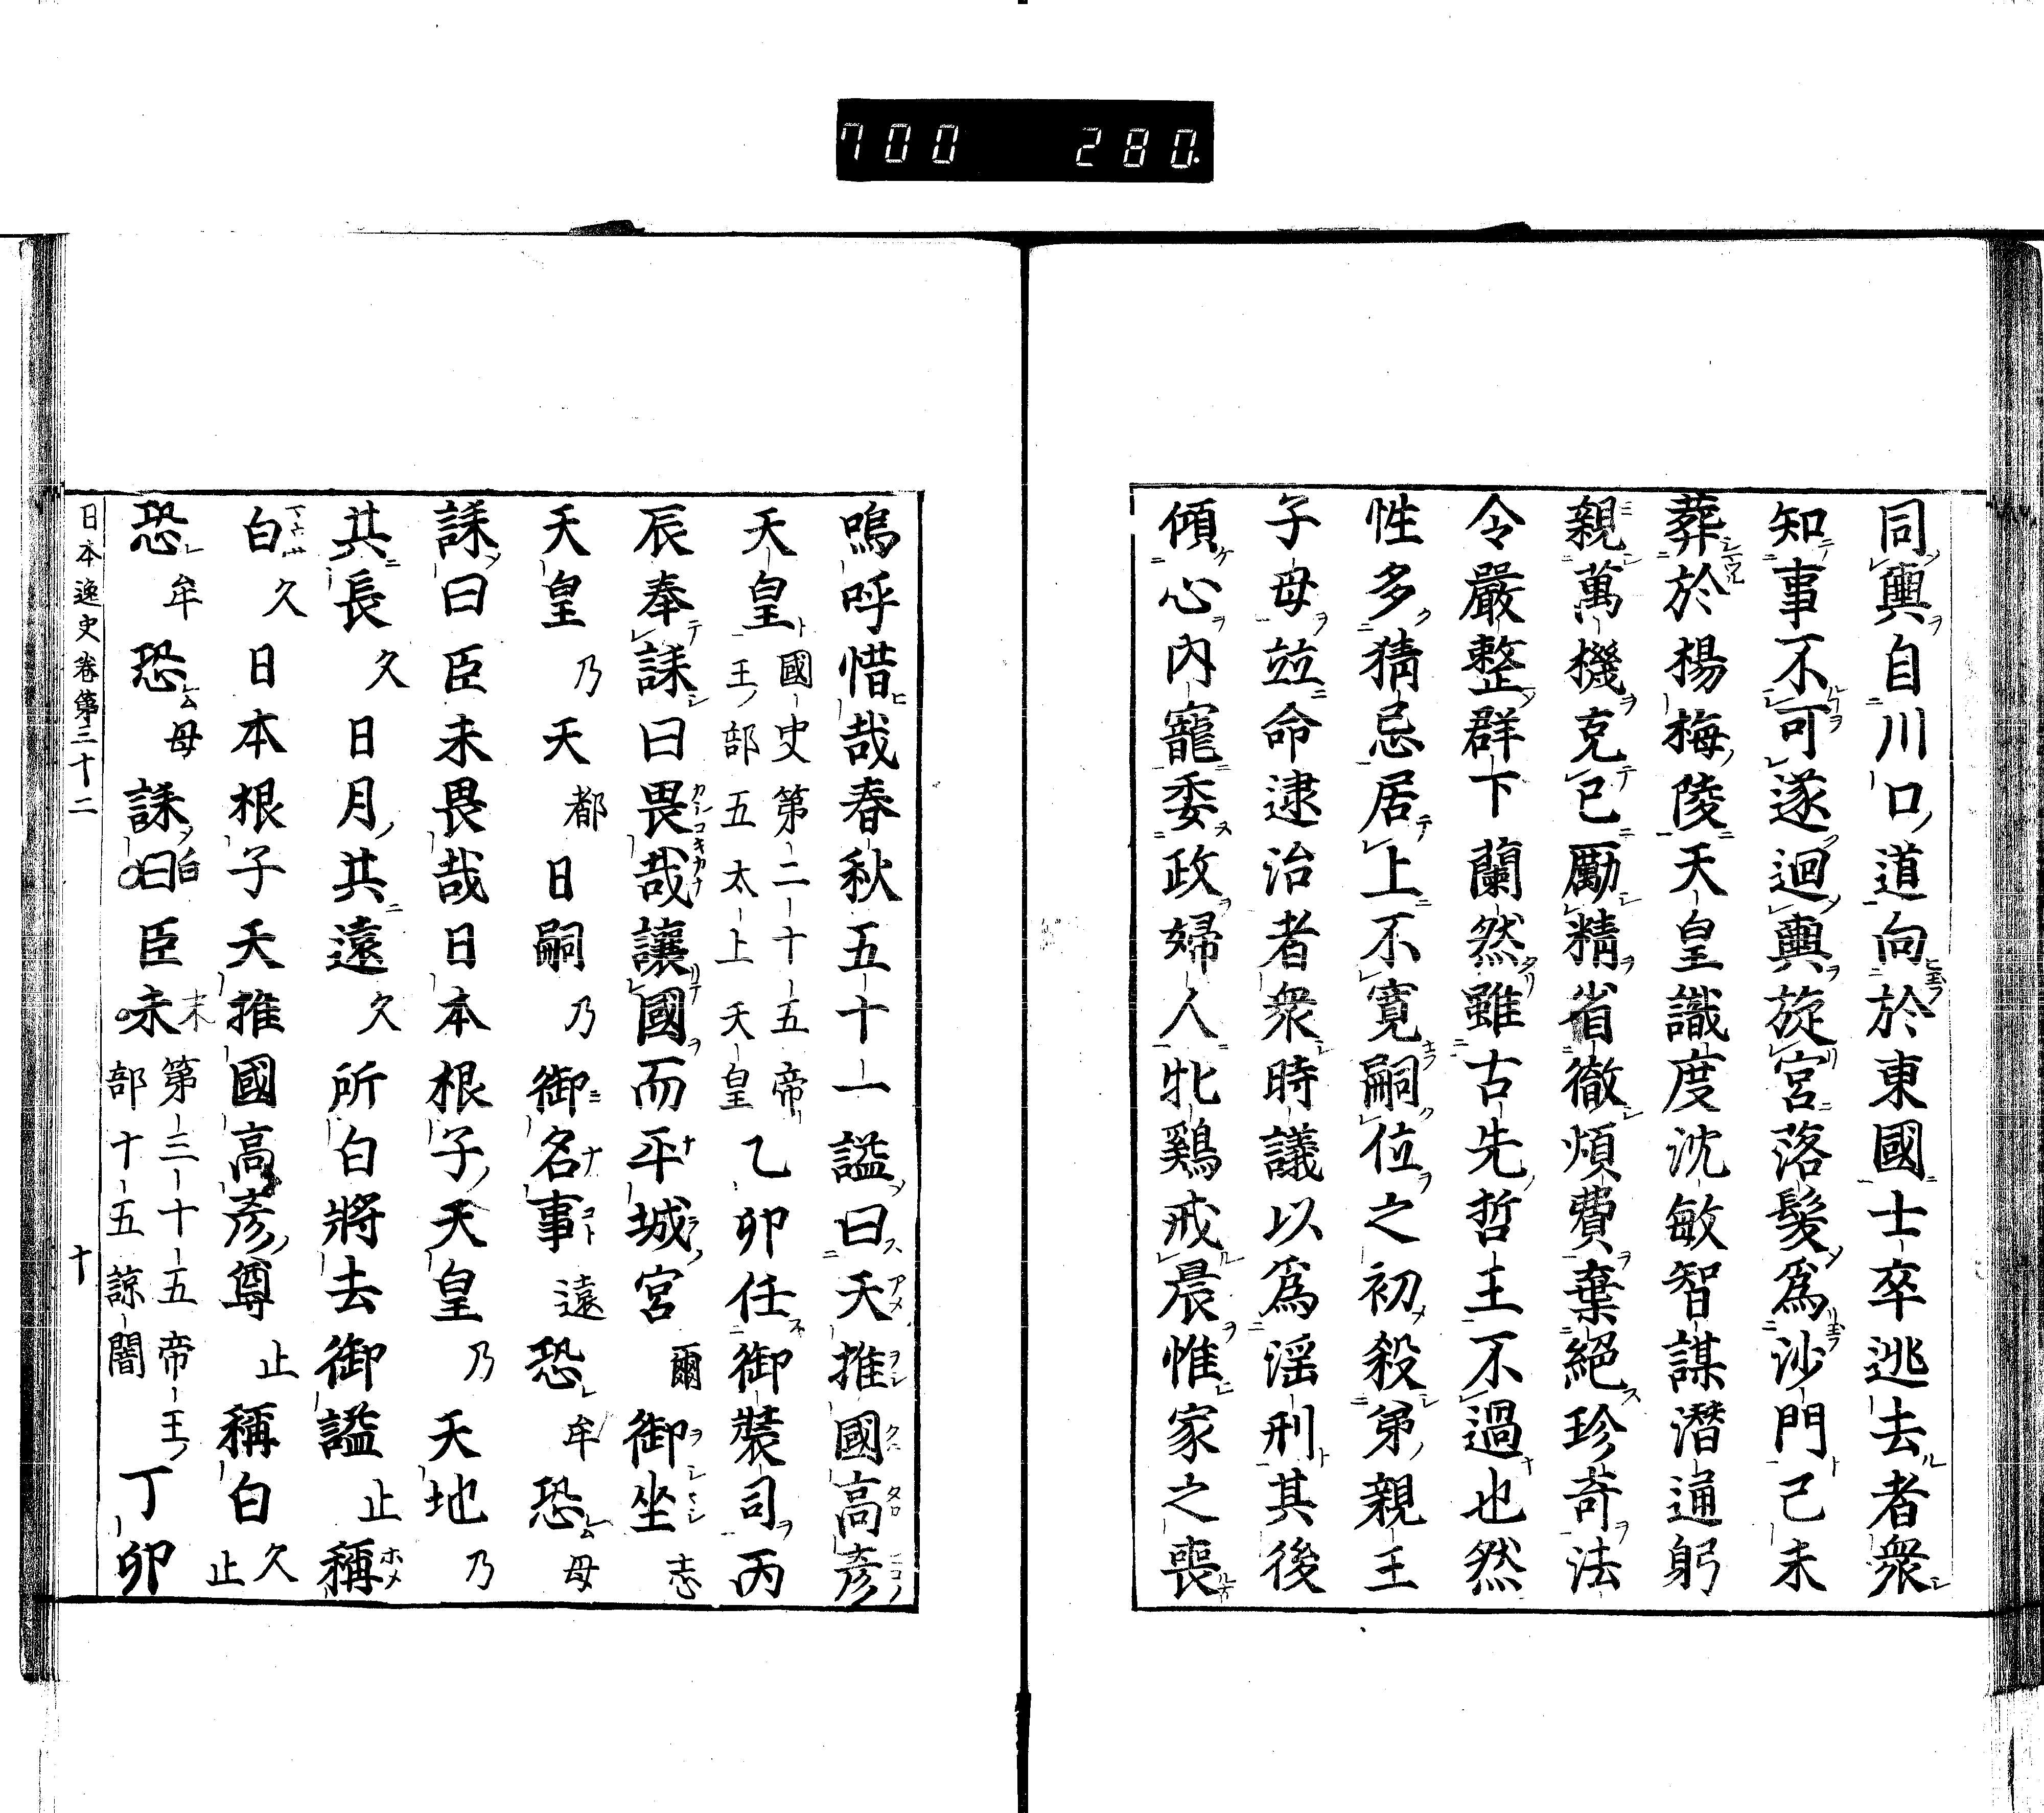 700 280
同輿自川口道向於東國士卒逃去者衆
知事不可遂迴輿旋宮落髮爲沙門己未
葬於楊梅陵天皇識度沈敏智謀潛通躬
親萬機克己勵精省徹煩費棄絕珍奇法
令嚴整群下蘭然雖古先哲王不過也然
性多猜忌居上不寛嗣位之初殺弟親王
子母竝命逮治者衆時議以爲淫刑其後
傾心內寵委政婦人牝鷄戒晨惟家之喪
嗚呼惜哉春秋五十一謚曰天推國高彥
天皇國史第二十五帝王部五太上天皇乙卯任御裝司丙
辰奉誄曰畏哉讓國而平城宮爾御坐志
天皇乃天都日嗣乃御名事遠恐牟恐母
誄曰臣未畏哉日本根子天皇乃天地乃
共長久日月共遠久所白將去御謚止稱
白久日本根子天推國高彥尊止稱白久止
恐牟恐母誄曰白臣未末第三十五帝王部十五諒闇丁卯
日本逸史卷第三十二 十